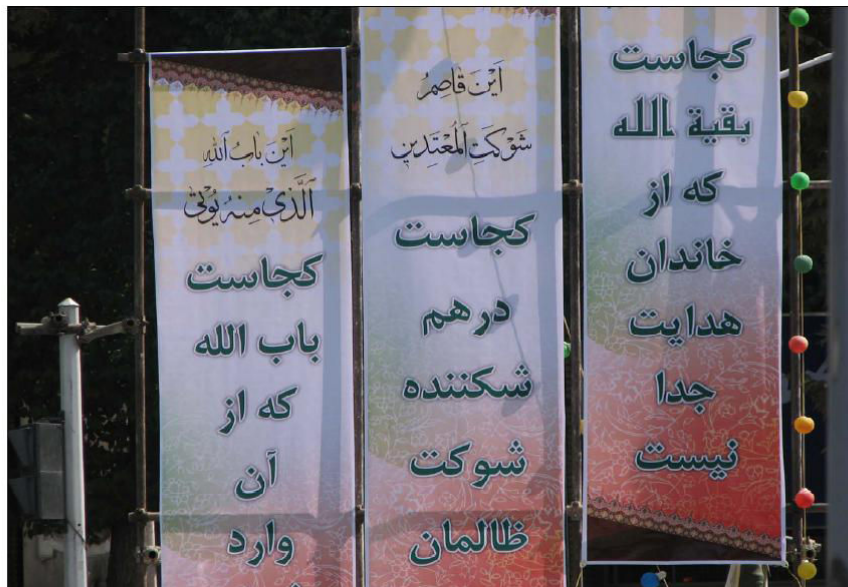 کجاست
بقیة الله
که از
خاندان
هدایت
جدا
نیست
اَیْنَ قاصِمُ
شَوْکَتِ الْمُعْتَدینَ
کجاست
درهم
شکننده
شوکت
ظالمان
اَیْنَ بابُ اللهِ
الَّذی مِنْهُ یُوْتی
کجاست
باب الله
که از
آن
وارد